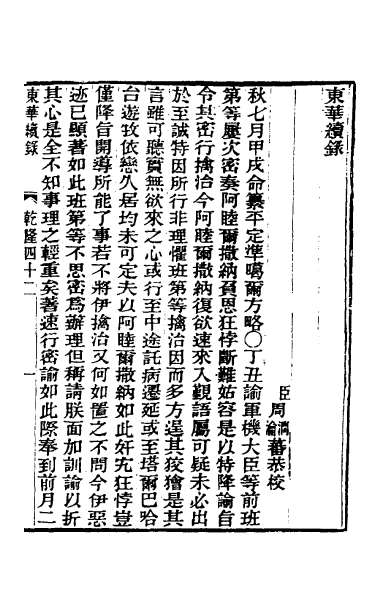 東華續錄
臣周潤瀹蕃恭校
秋七月甲戌命纂平定準噶爾方略○丁丑諭軍機大臣等前班
第等屢次密奏阿睦爾撒納負恩狂悖斷難姑容是以特降諭旨
令其密行擒治今阿睦爾撒納復欲速來入覲語屬可疑未必出
於至誠特因所行非理懼班第等擒治因而多方逞其狡獪是其
言雖可聽實無欲來之心或行至中途託病遷延或至塔爾巴哈
台遊牧依戀久居均未可定夫以阿睦爾撒納如此奸宄狂悖豈
僅降旨開導所能了事若不將伊擒治又何如置之不問今伊惡
迹已顯著如此班第等不思密為辦理但稱請朕面加訓諭以折
其心是全不知事理之輕重矣著速行密諭如此際奉到前月二
東華續錄 乾隆四十二 一